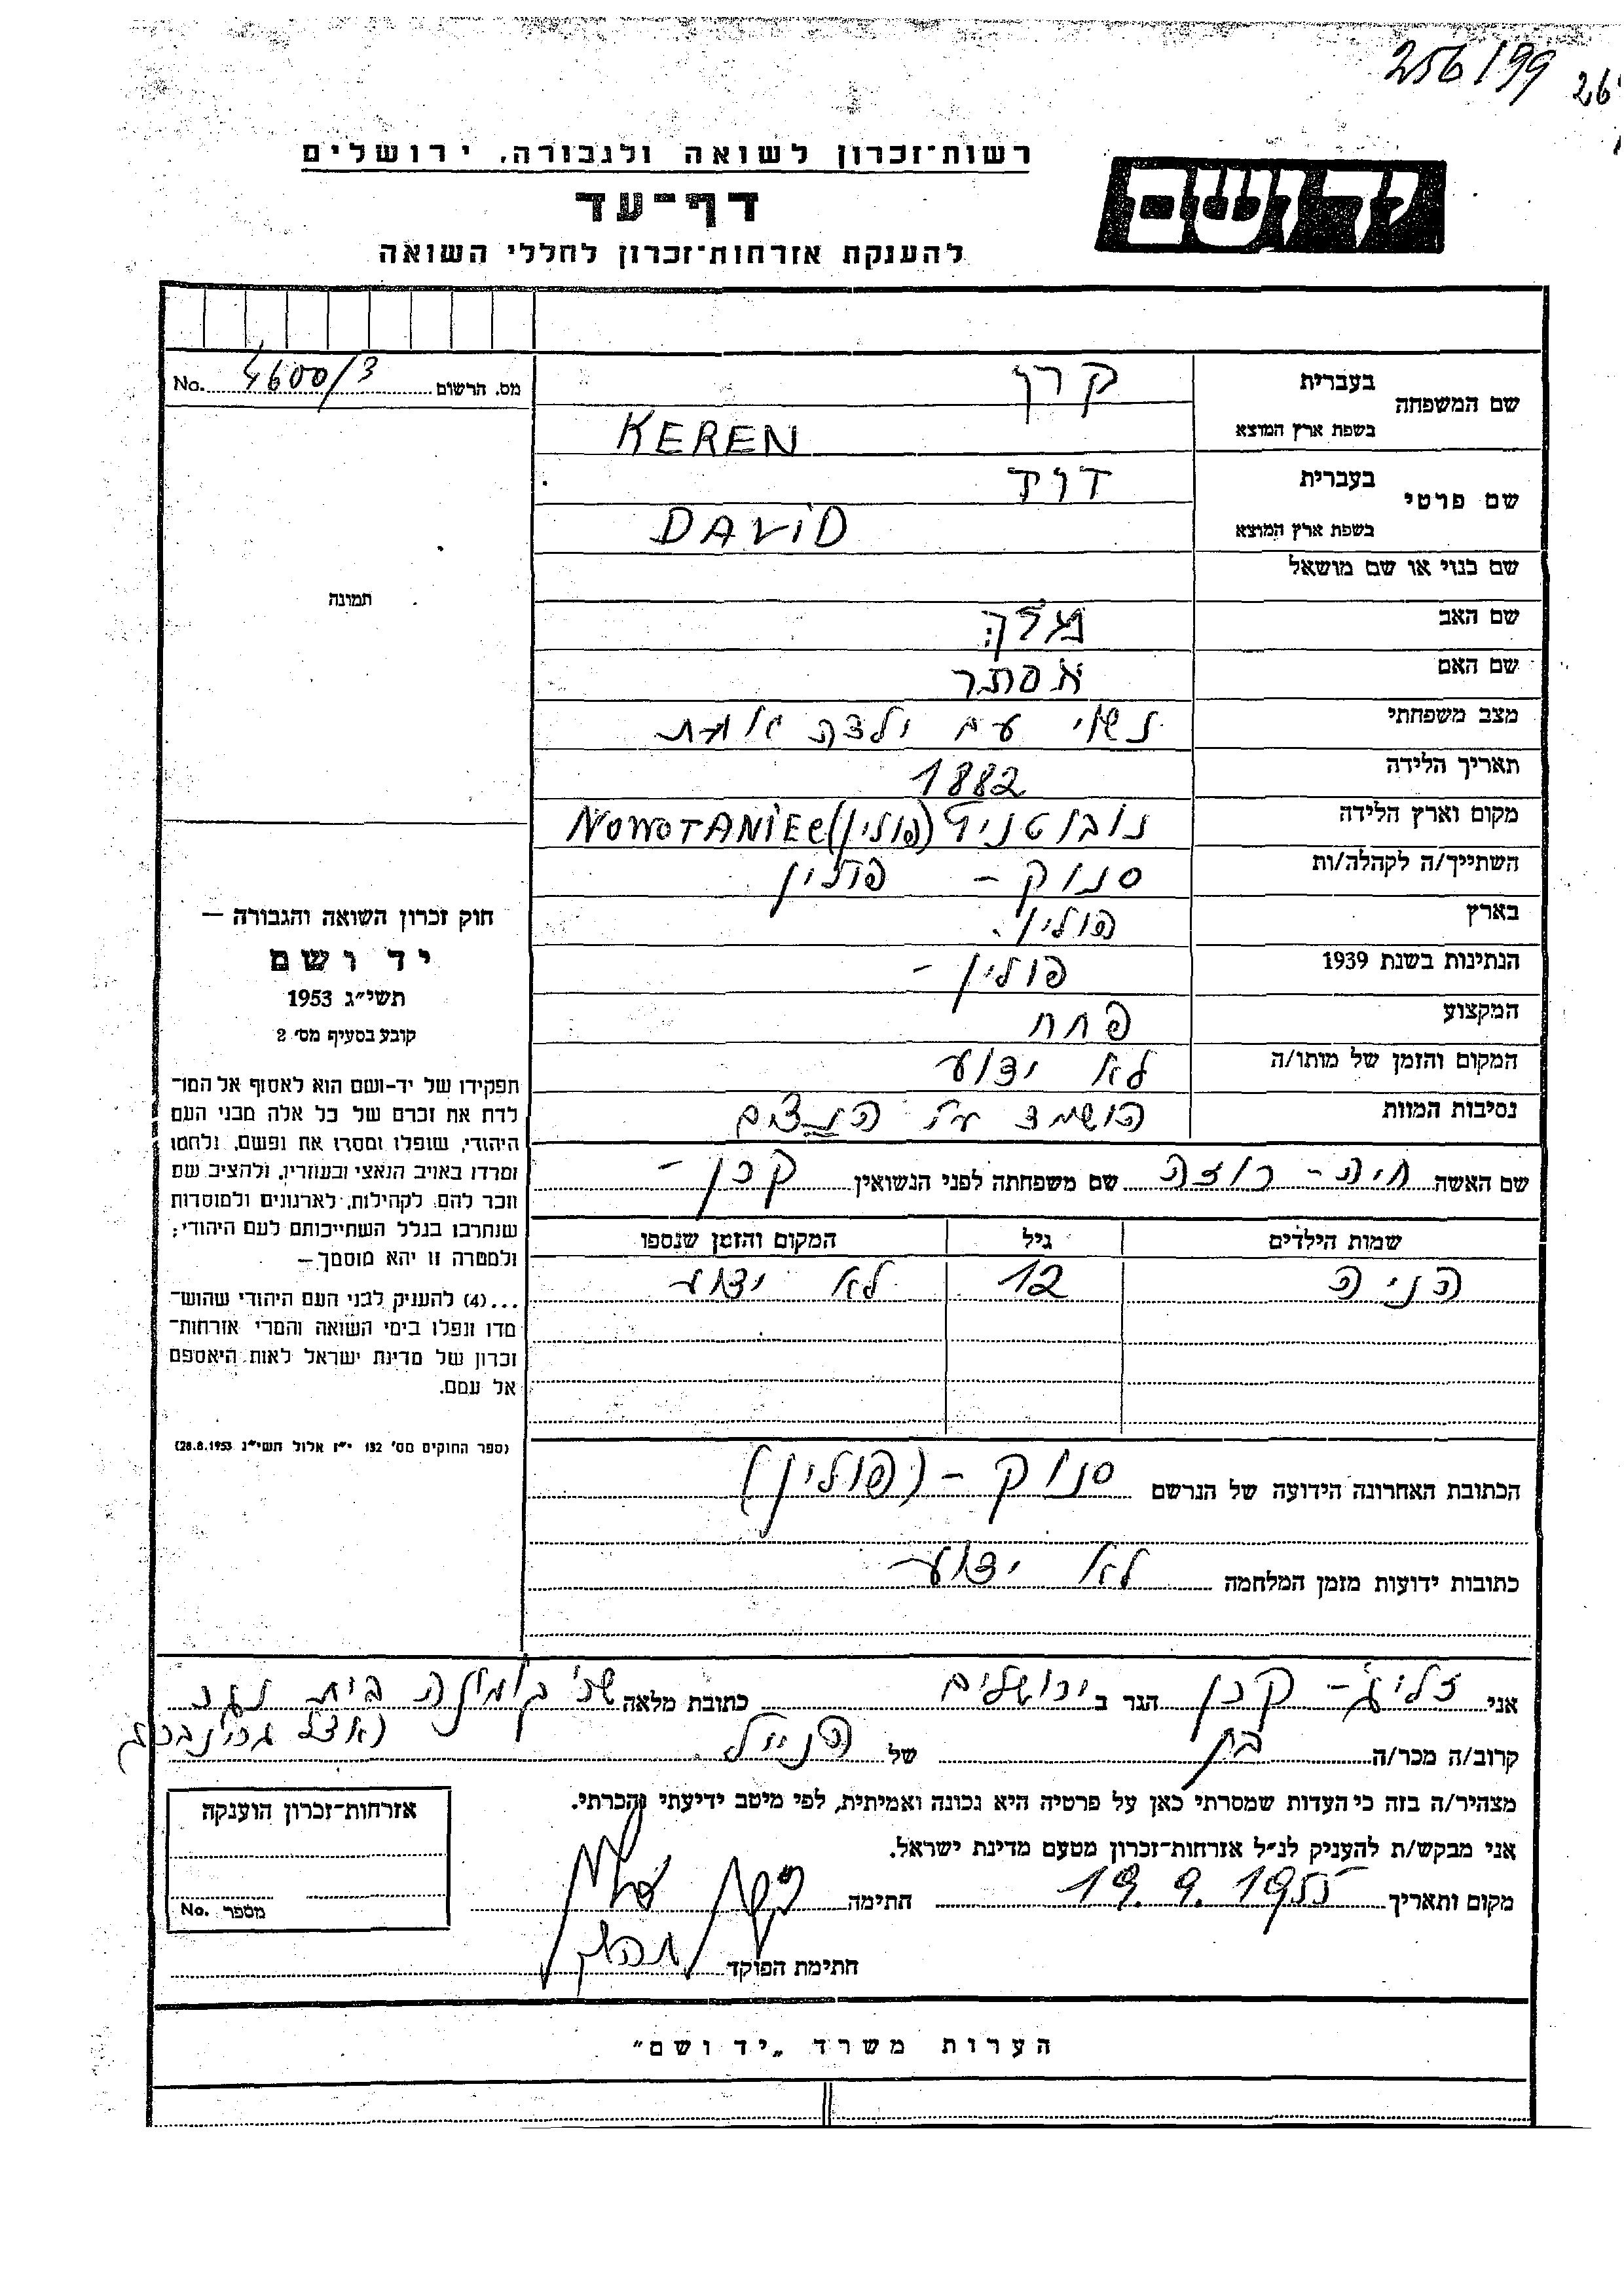 256/99
26
רשות־זכרון לשואה ולגבורה. ירושלים
יד ושם
דף־עד
להענקת אזרחות־זכרון לחללי השואה
מס. הרשום 4600/3 No.
שם המשפחה
בעברית קרן
בשפת ארץ המוצא KEREN
שם פרטי
בעברית דוד
בשפת ארץ המוצא DAViD
שם בנוי או שם מושאל
תמונה
שם האב
שם האם אסתר
מצב משפחתי נשוי עם ילדה אחת
תאריך הלידה 1882
מקום וארץ הלידה נובוטניץ (פולין) NOWOTANiEC
השתייך/ה לקהלה/ות סנוק - פולין
בארץ פולין.
הנתינות בשנת 1939 פולין -
המקצוע פחח
המקום והזמן של מותו/ה לא ידוע
נסיבות המוות הושמד על הנצים
שם האשה חיה - רוזה שם משפחתה לפני הנשואין קרן -
שמות הילדים גיל המקום והזמן שנספו
הניה 12 לא ידוע
הכתובת האחרונה הידועה של הנרשם סנוק - (פולין)
כתובות ידועות מזמן המלחמה לא ידוע
חוק זכרון השואה והגבורה —
יד ושם
תשי״ג 1953
קובע בסעיף מס׳ 2
תפקידו של יד-ושם הוא לאסוף אל המו־
לדת את זכרם של כל אלה מבני העם
היהודי, שנפלו ומסרו את נפשם, נלחמו
ומרדו באויב הנאצי ובעוזריו, ולהציב שם
וזכר להם, לקהילות, לארגונים ולמוסדות
שנחרבו בגלל השתייכותם לעם היהודי;
ולמטרה זו יהא מוסמך —
...(4) להעניק לבני העם היהודי שהוש־
מדו ונפלו בימי השואה והמרי אזרחות־
זכרון של מדינת ישראל לאות היאספם
אל עמם.
(ספר החוקים מס׳ 132 י״ז אלול תשי״ג 28.8.1953)
אני זליג - קרן הגר ב ירושלים כתובת מלאה שכ׳ קומונה בית
(אצל גרינברג
קרוב/ה מכר/ה בן של הנ״ל
מצהיר/ה בזה כי העדות שמסרתי כאן על פרטיה היא נכונה ואמיתית, לפי מיטב ידיעתי והכרתי.
אני מבקש/ת להעניק לנ״ל אזרחות־זכרון מטעם מדינת ישראל.
מקום ותאריך 19. 9. 1955 חתימה
חתימת הפוקד
אזרחות־זכרון הוענקה
מספר No.
הערות משרד „יד ושם״